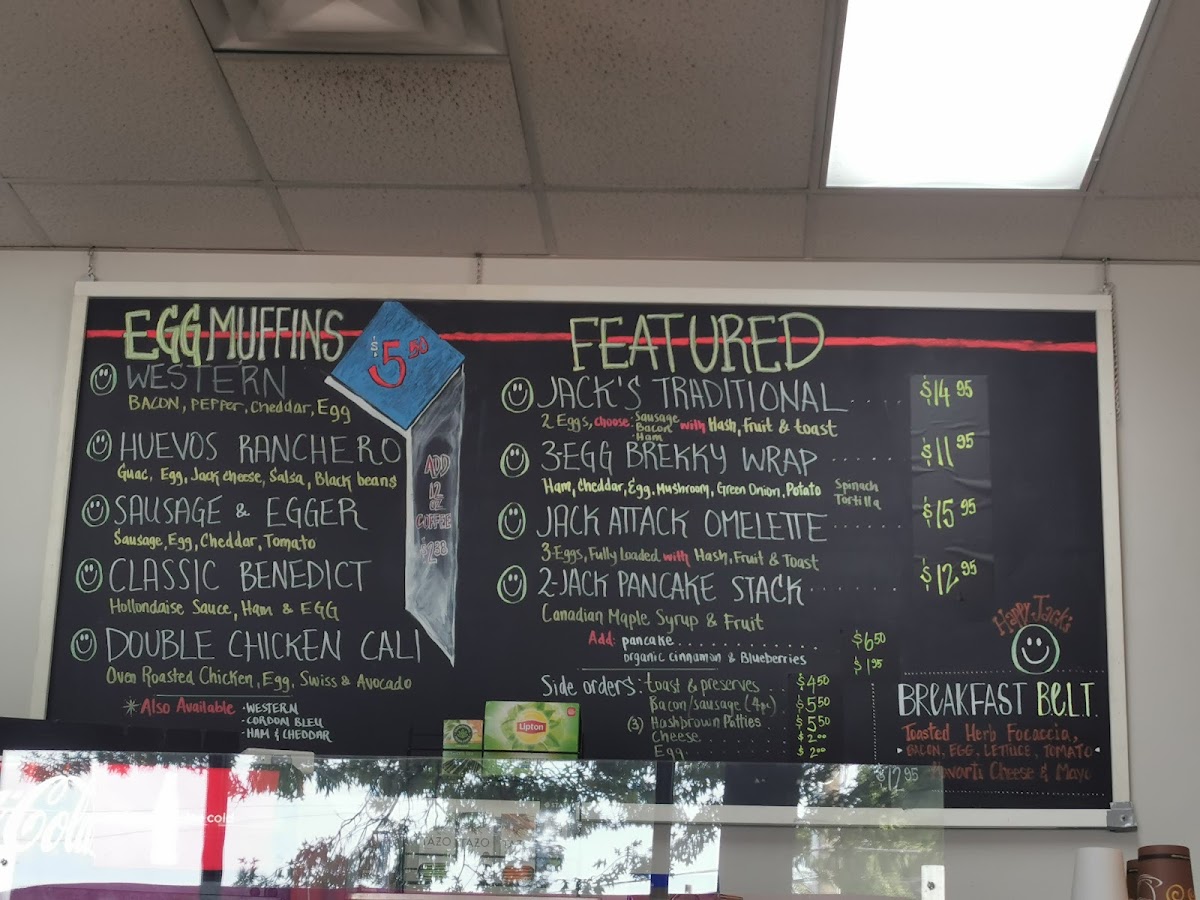 EGG MUFFINS
$5.50
WESTERN
BACON, PEPPER, Cheddar, Egg
HUEVOS RANCHERO
Guac, Egg, Jack cheese, Salsa, Black beans
SAUSAGE & EGGER
Sausage, Egg, Cheddar, Tomato
CLASSIC BENEDICT
Hollondaise Sauce, Ham & EGG
DOUBLE CHICKEN CALI
Oven Roasted Chicken, Egg, Swiss & Avocado
*Also Available • WESTERN
• CORDON BLEU
• HAM & CHEDDAR
ADD
12
oz
COFFEE
FEATURED
JACK'S TRADITIONAL ..... $14.95
2 Eggs, choose: Sausage Bacon Ham with Hash, Fruit & toast
3-EGG BREKKY WRAP ...... $11.95
Ham, Cheddar, Egg, Mushroom, Green Onion, Potato Spinach Tortilla
JACK ATTACK OMELETTE ...... $15.95
3-Eggs, Fully Loaded with Hash, Fruit & Toast
2-JACK PANCAKE STACK ....... $12.95
Canadian Maple Syrup & Fruit
Add: pancake ........ $6.50
organic cinnamon & Blueberries $1.95
Side orders: toast & preserves .. $4.50
Bacon/sausage (4pc) . $5.50
(3) Hashbrown Patties $5.50
Cheese ...... $2.00
Egg ...... $2.00
Happy Jack's
BREAKFAST B.E.L.T.
Toasted Herb Focaccia,
BACON, EGG, LETTUCE, TOMATO
Havarti Cheese & Mayo
$12.95
Lipton
Cola
cold
TAZO TAZO